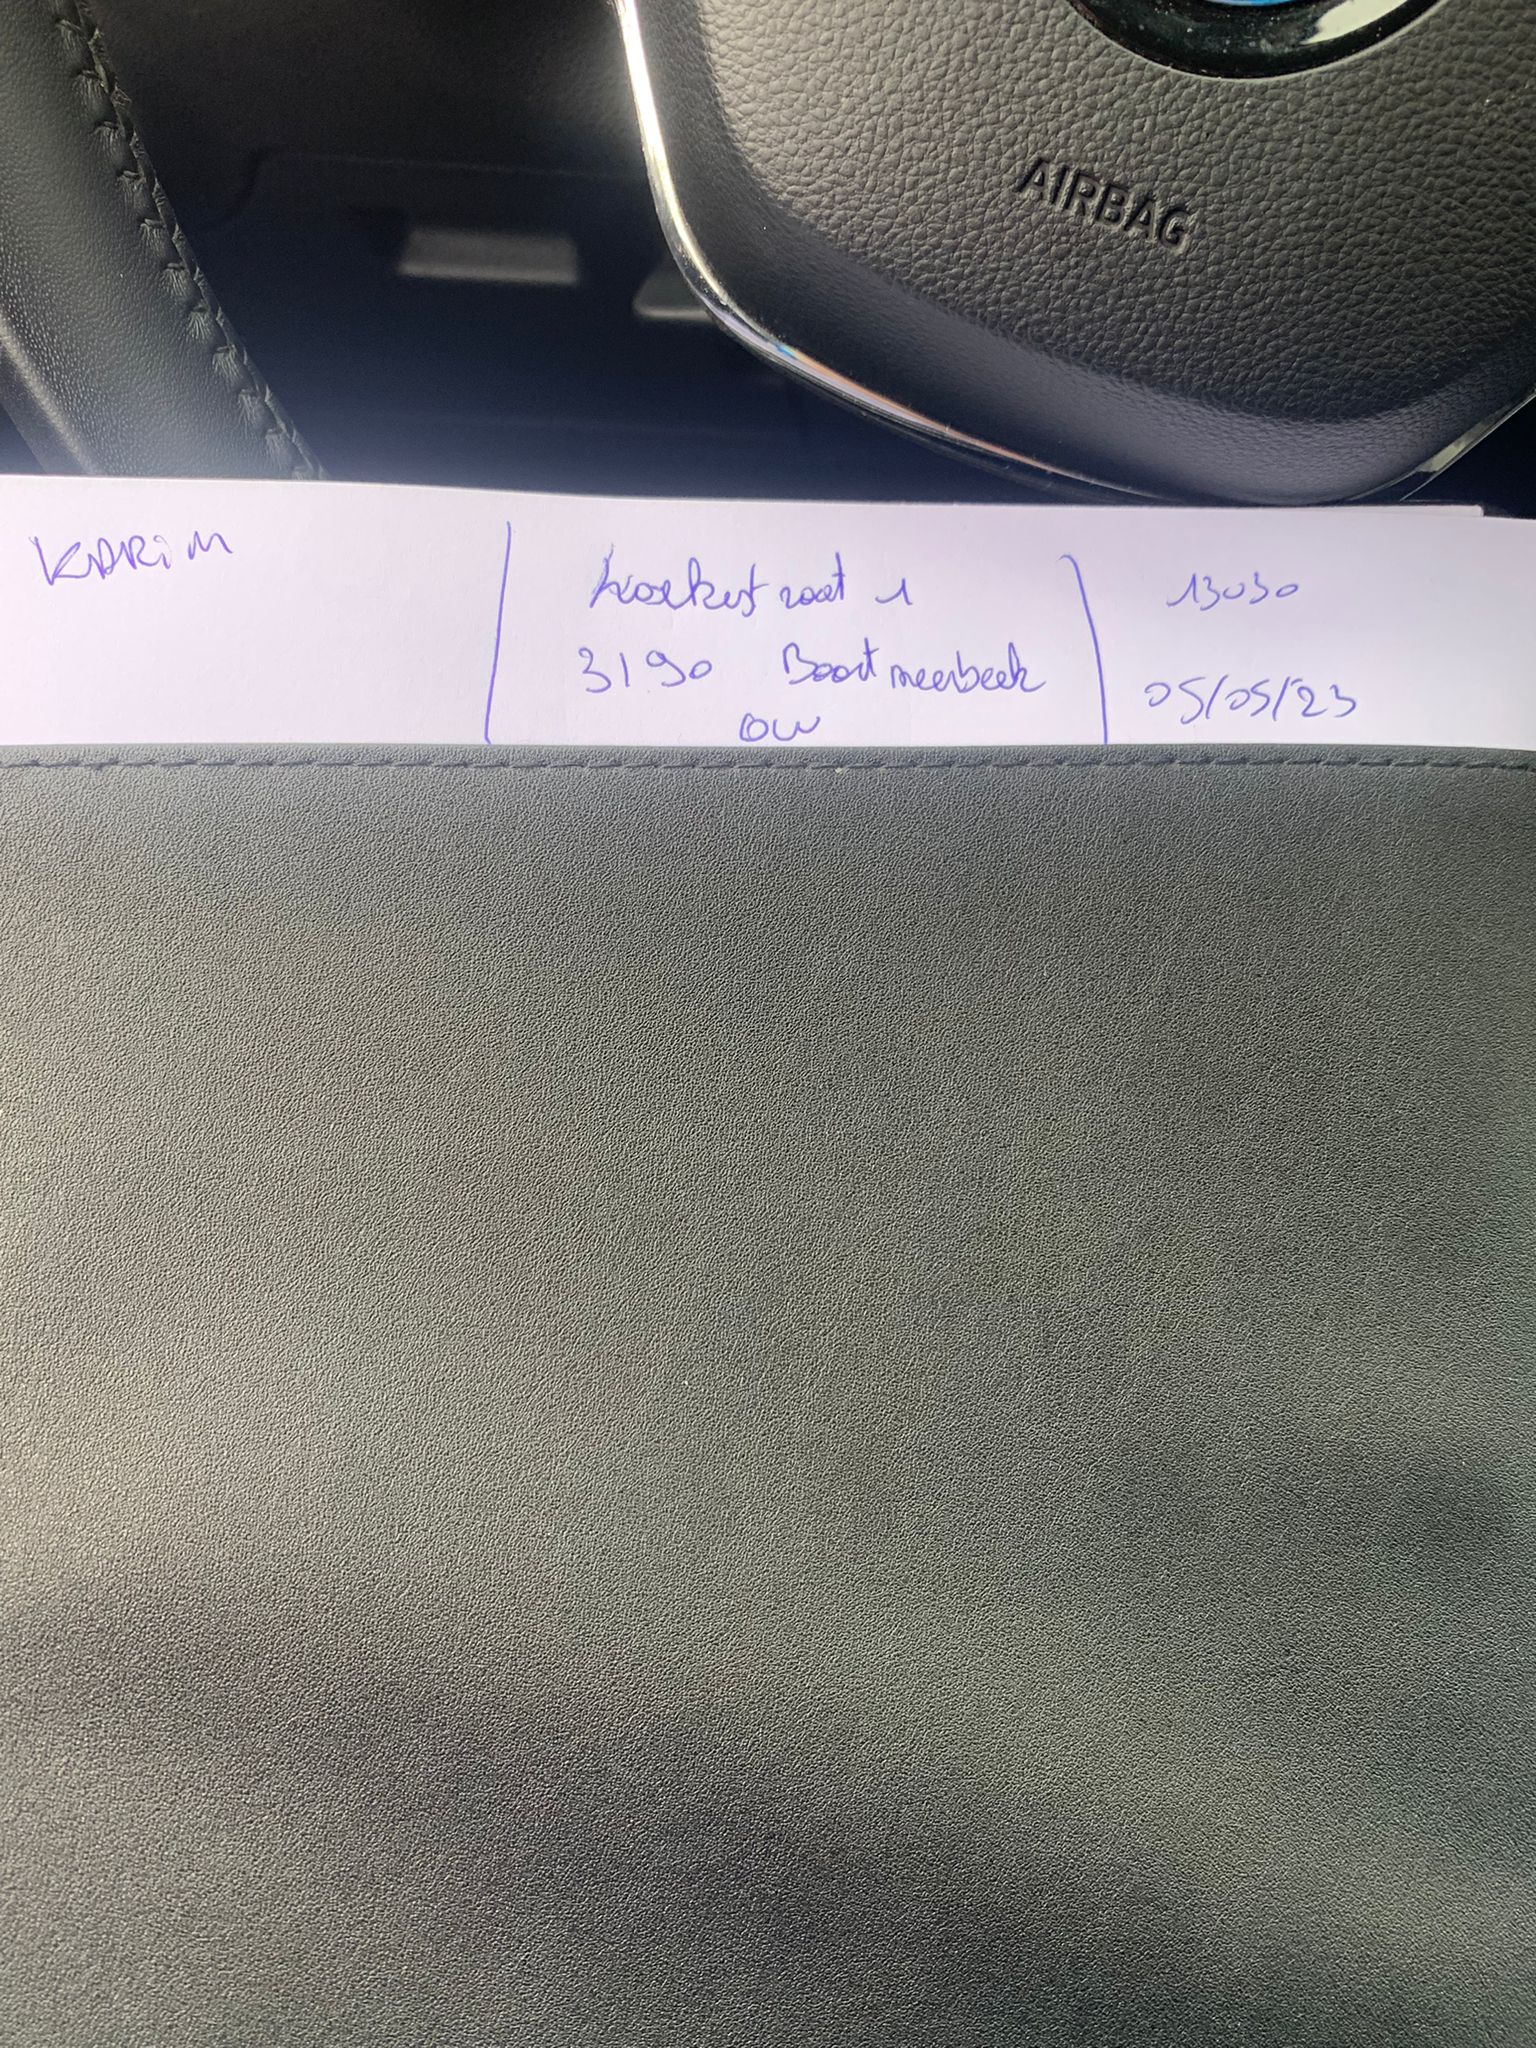 AIRBAG
KARIM
straat 1
3190 Boortmeerbeek
OW
13030
05/05/23